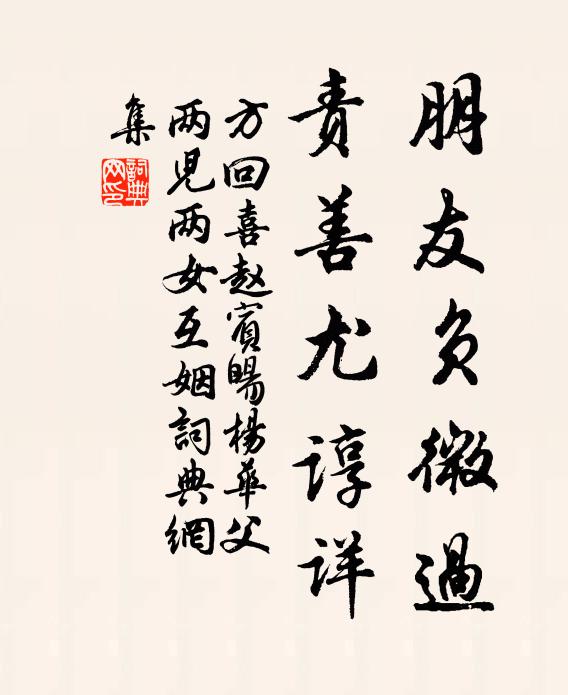 朋友负微過
责善尤谆详
方回喜赵賓暘楊華父
两児两女互姻詞典網
集
詞典网印